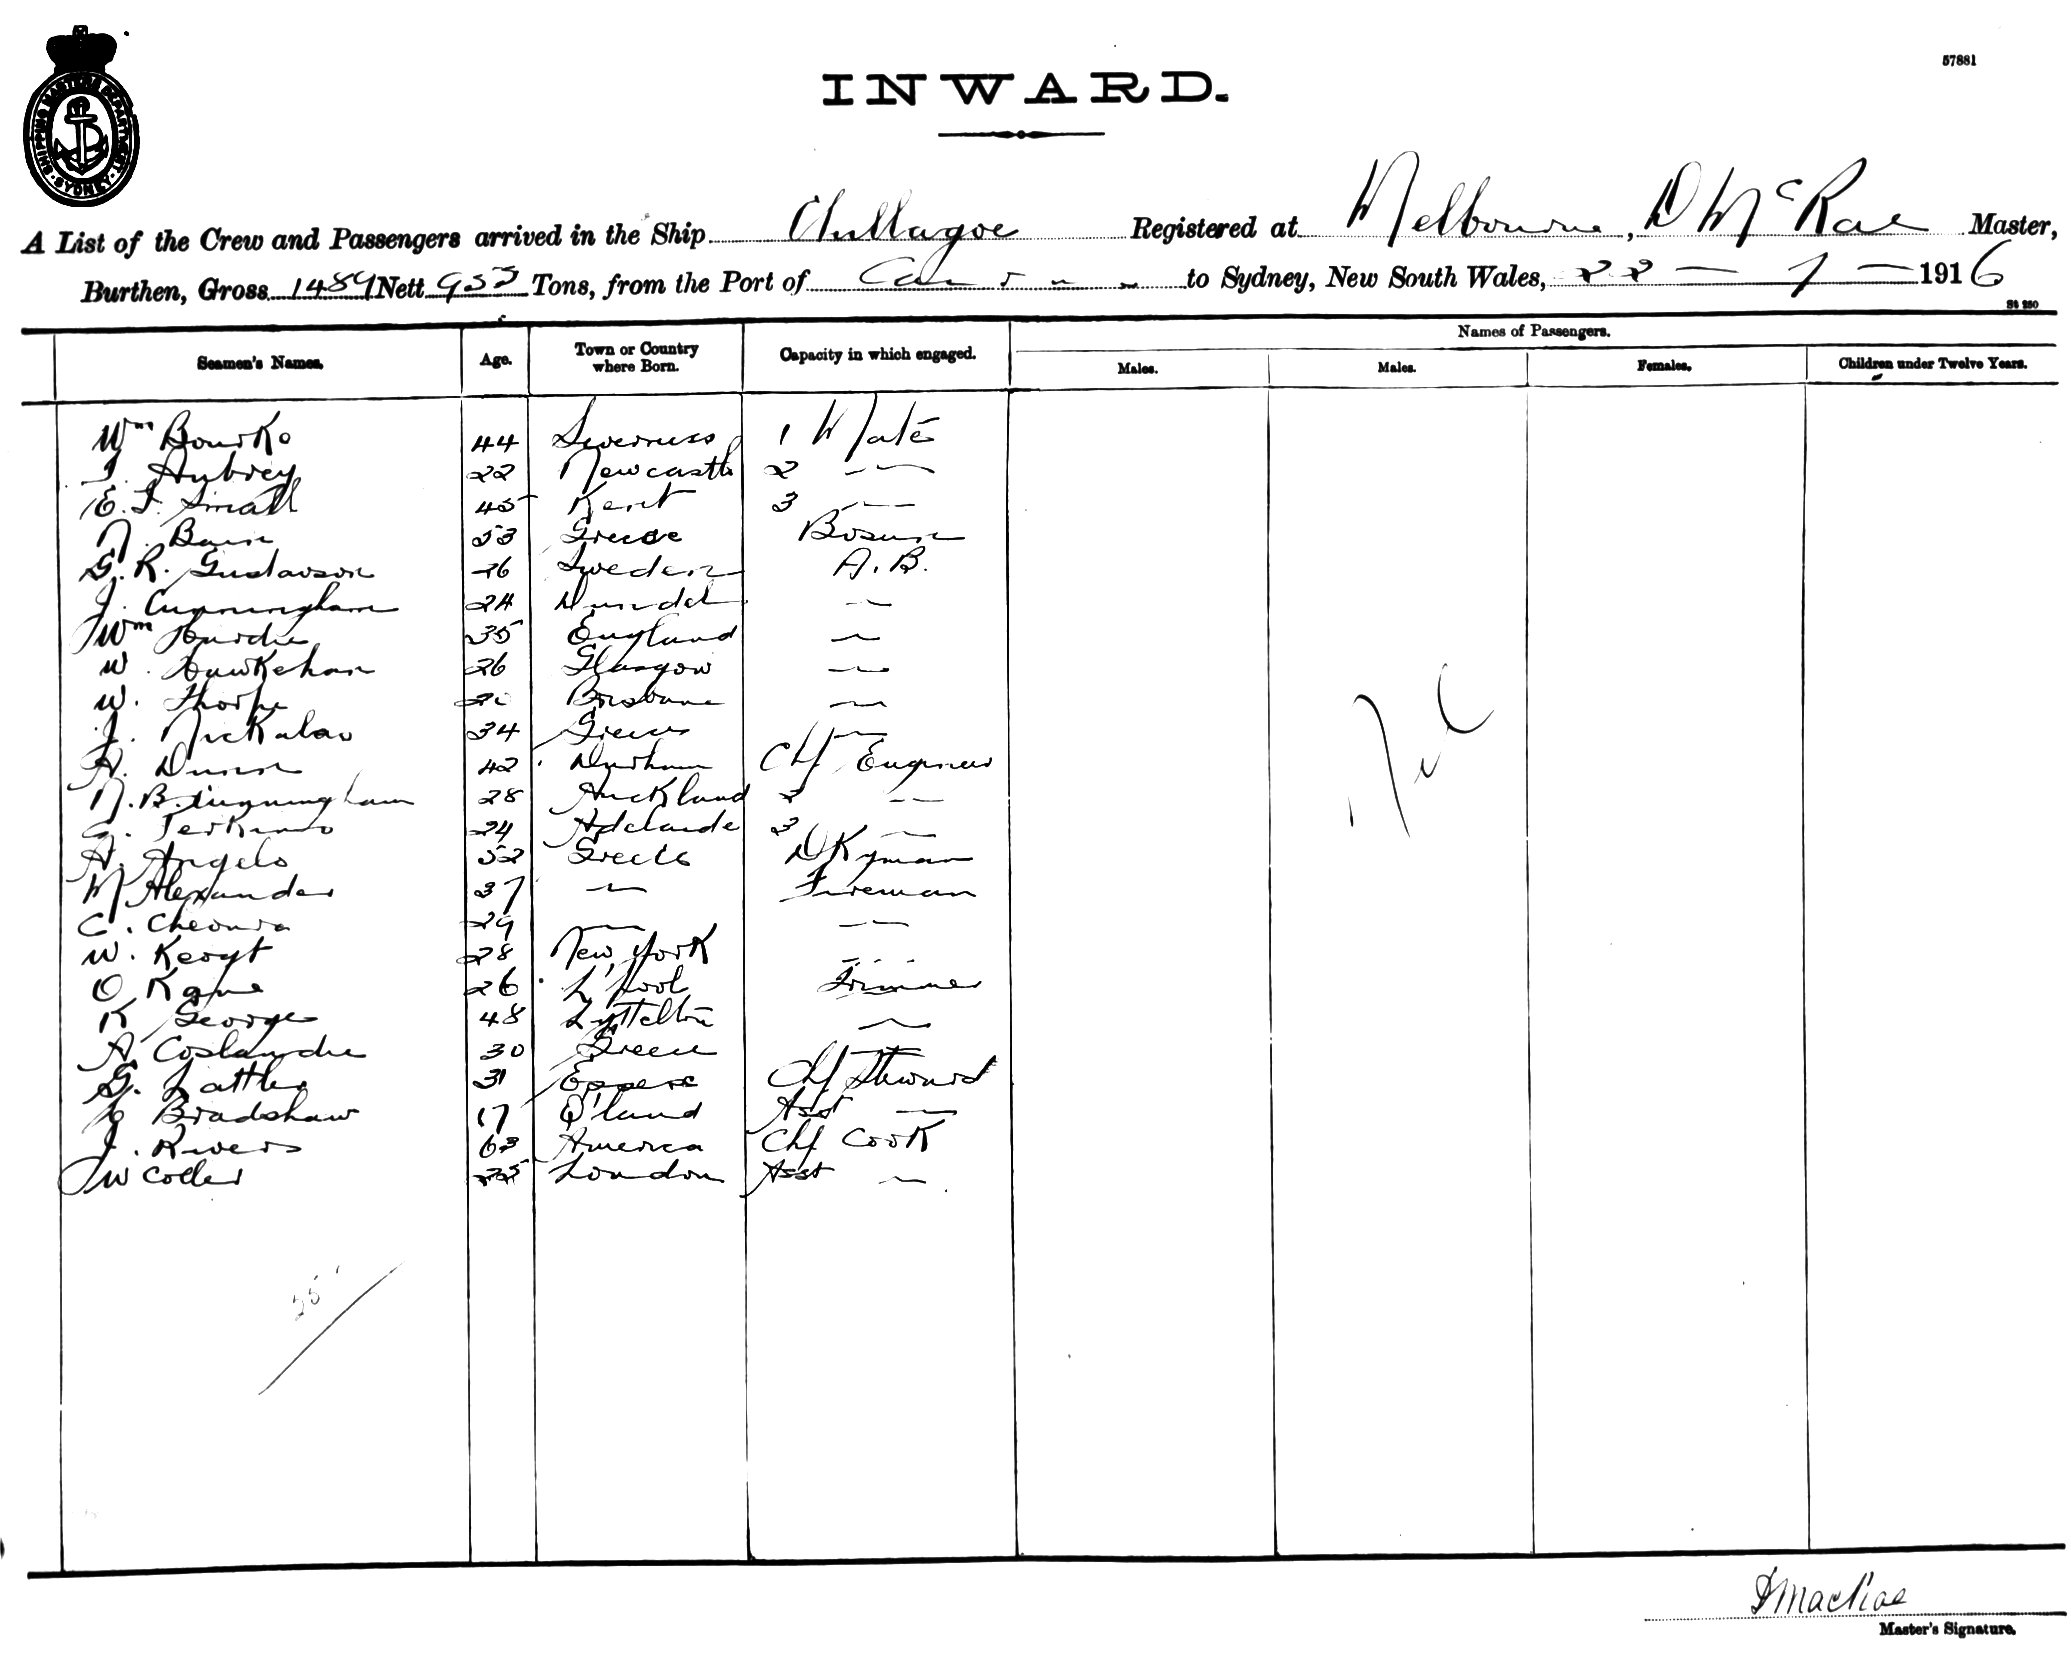 SHIPPING MASTERS DEPARTMENT SYDNEY
57881
INWARD.
A List of the Crew and Passengers arrived in the Ship Chillagoe Registered at Melbourne, D McRae Master,
Burthen, Gross 1489 Nett 953 Tons, from the Port of to Sydney, New South Wales, 22 – 1 – 1916
St 250
Names of Passengers.
Seamen's Names. Age. Town or Country where Born. Capacity in which engaged. Males. Males. Females. Children under Twelve Years.
Wm Bourke 44 Inverness 1 Mate
Aubrey 22 Newcastle 2 —
E. J. Small 45 Kent 3 —
N. Bain 53 Greece Bosun
G. R. Gustavson 26 Sweden A.B.
J. Cunningham 24 Dundee —
Wm Hardie 35 England —
W. Hawkehan 26 Glasgow —
W. Thorpe Brisbane —
J. Nickalao 34 Greece —
A. Dunn 42 Durham Chf Engineer
N. B. Cunningham 28 Auckland 2 —
G. Jerkins 24 Adelaide 3 —
A. Angelo 52 Greece DKyman
M Alexander 37 — Fireman
C. Cheonis 29 — —
W. Keogt 28 New York
O Kane 26 L'pool Trimmer
K George 48 Lyttelton —
A. Coslandie 30 Greece —
G. Lattler 31 Chf Steward
Bradshaw 17 Q'land Asst —
J. Rivers 63 America Chf Cook
J W Coller 25 London Asst —
Nil
D MacRae
Master's Signature.